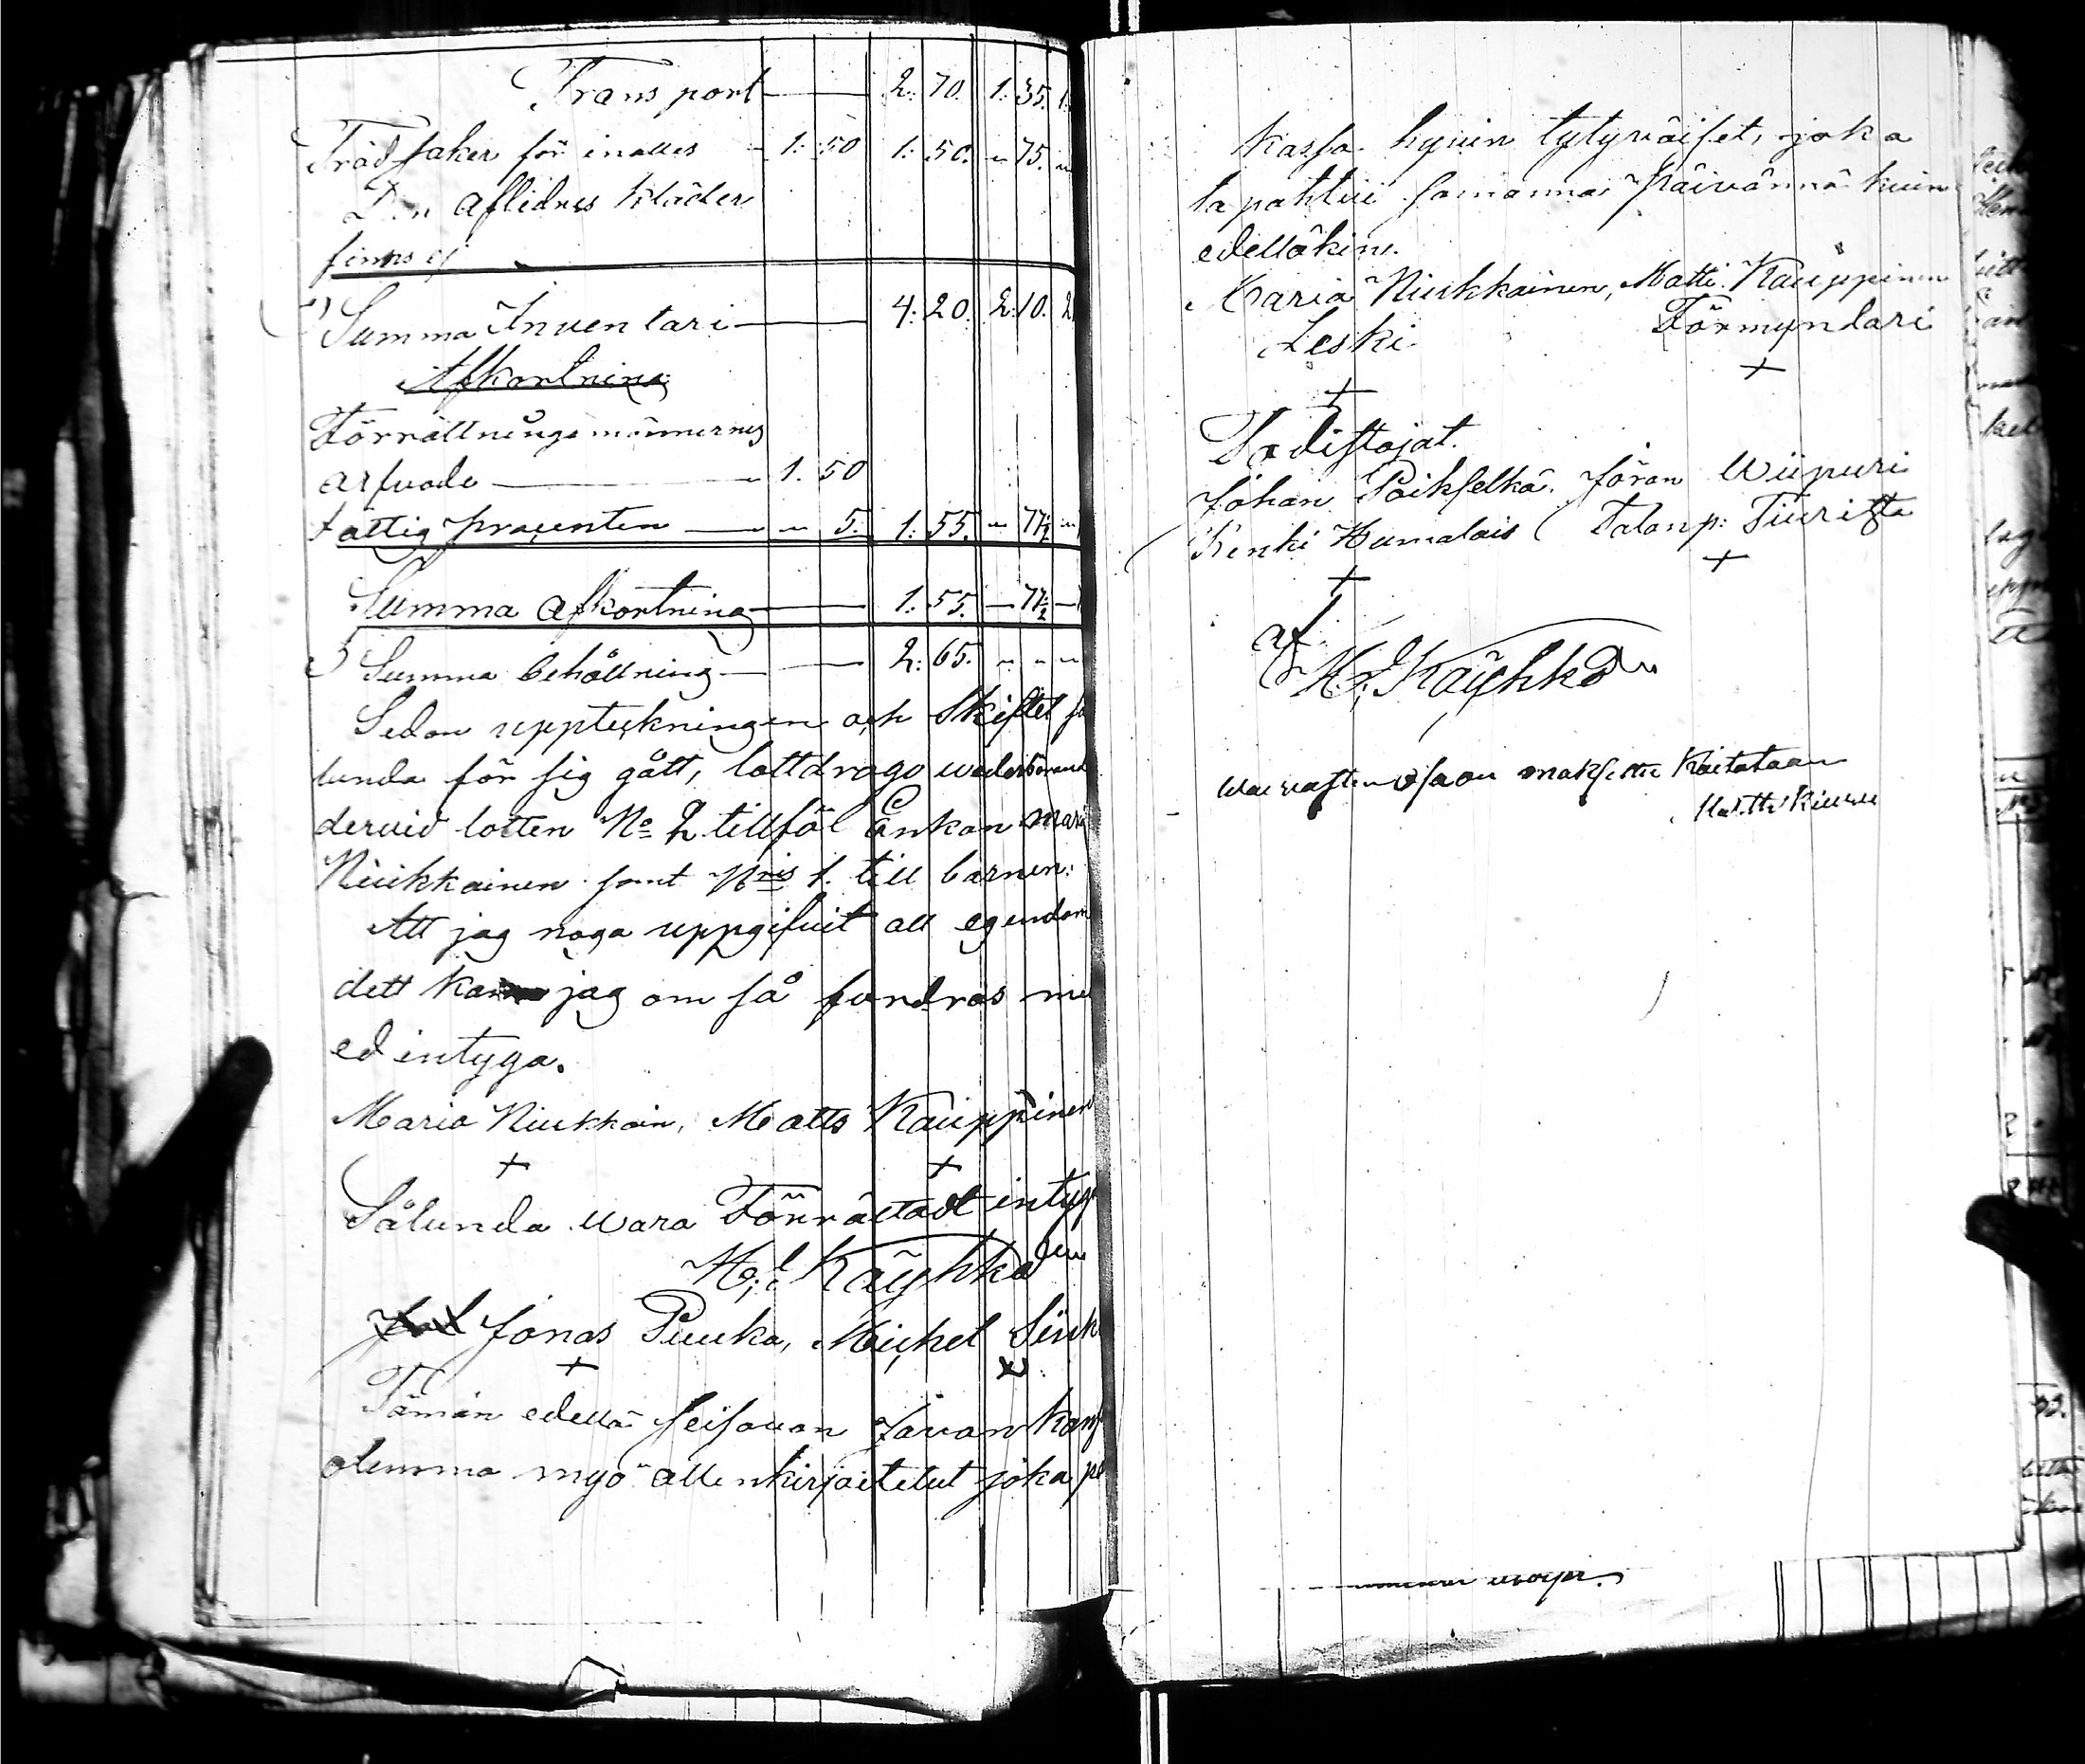 Transport — 2: 70. 1: 35. 1:
Trädsaker för inalles - 1: 50 1: 50. " 75. "
Den Aflidnes kläder
finns ej
Summa Inventari — 4: 20. 2: 10. 2
Afkortning
Förrättningsmännernes
arfvode — 1. 50
Fattig procenten — " 5. 1: 55. " 77½ "
Summa afkortning — 1: 55. — 77½ —
Summa behållning — 2: 65. " " "
Sedan uppteckningen och Skiftet så
lunda för sig gått, lottdrogo
dervid lotten No 2 tillföl Enkan Mari
Niukkainen samt Nris 1. till barnen:
Att jag noga uppgifvit all egendom
dett kan jag om så fordras me
ed intyga.
Maria Niukkain, Matts Kauppinen
+ +
Sålunda vara Förrättadt intyg
M. Käyhkö
Jonas Puuka, Michel Siuk
+
Tämän edellä seisovan Tavaran kans
olemma myö allenkirjoitetut joka
kassa hyvin tytyväiset, joka
tapahtui samanna Päivännä kuin
edelläkin.
Maria Niukkainen, Matti Kauppinen
Leski Förmyndari
+ +
Todistajat.
Johan Poikselkä. Jöran Wiipuri
Henki Humalais Talonp: Tiurista
+ +
af
M. Käyhkö
Waivasten osa on maksettu Kuitataan
Matti Kiuru